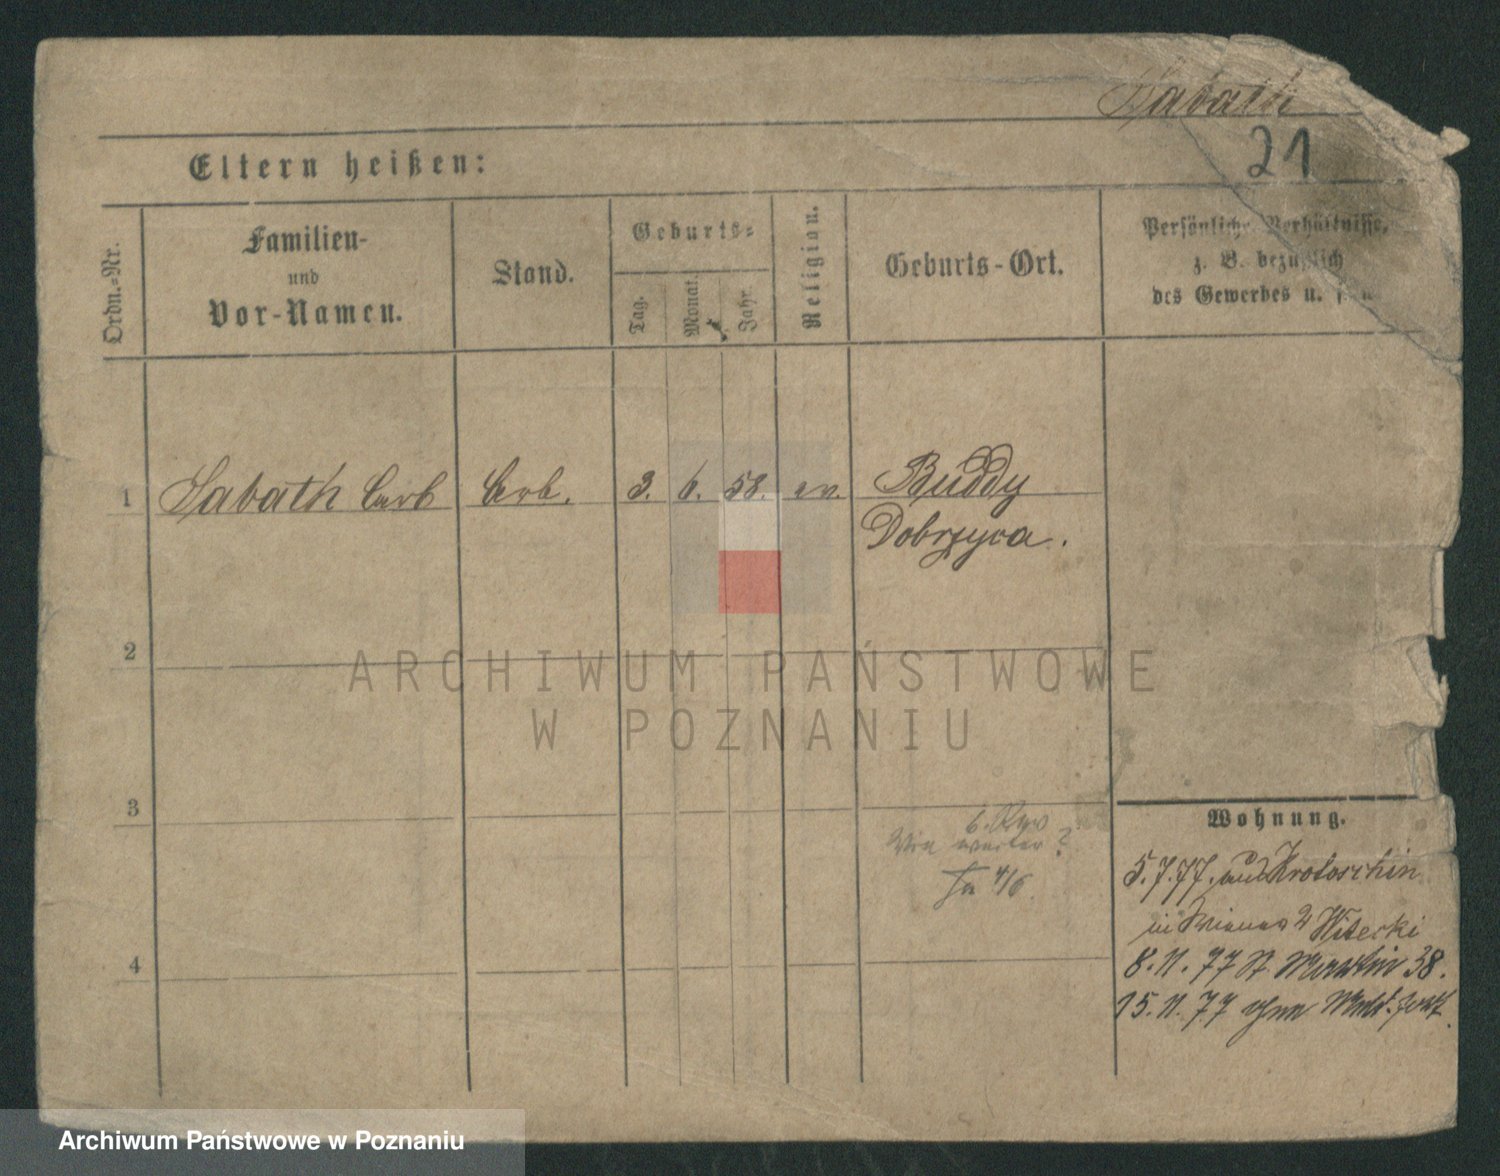 Sabath
21
Eltern heißen:
Ordn.-Nr.
Familien-
und
Vor-Namen.
Stand.
Geburts-
Tag.
Monat.
Jahr.
Religion.
Geburts-Ort.
Persönliche Verhältnisse,
z. B. bezüglich
des Gewerbes u.
1 Sabath Carl Arb. 3. 6. 58. ev. Buddy
Dobrzyca.
2
3
weiter?
4/6
4
Wohnung.
5.7.77. aus Krotoschin
in Witecki
8.11.77 St Martin 38.
15.11.77 ohne Meld. fort.
ARCHIWUM PAŃSTWOWE
W POZNANIU
Archiwum Państwowe w Poznaniu